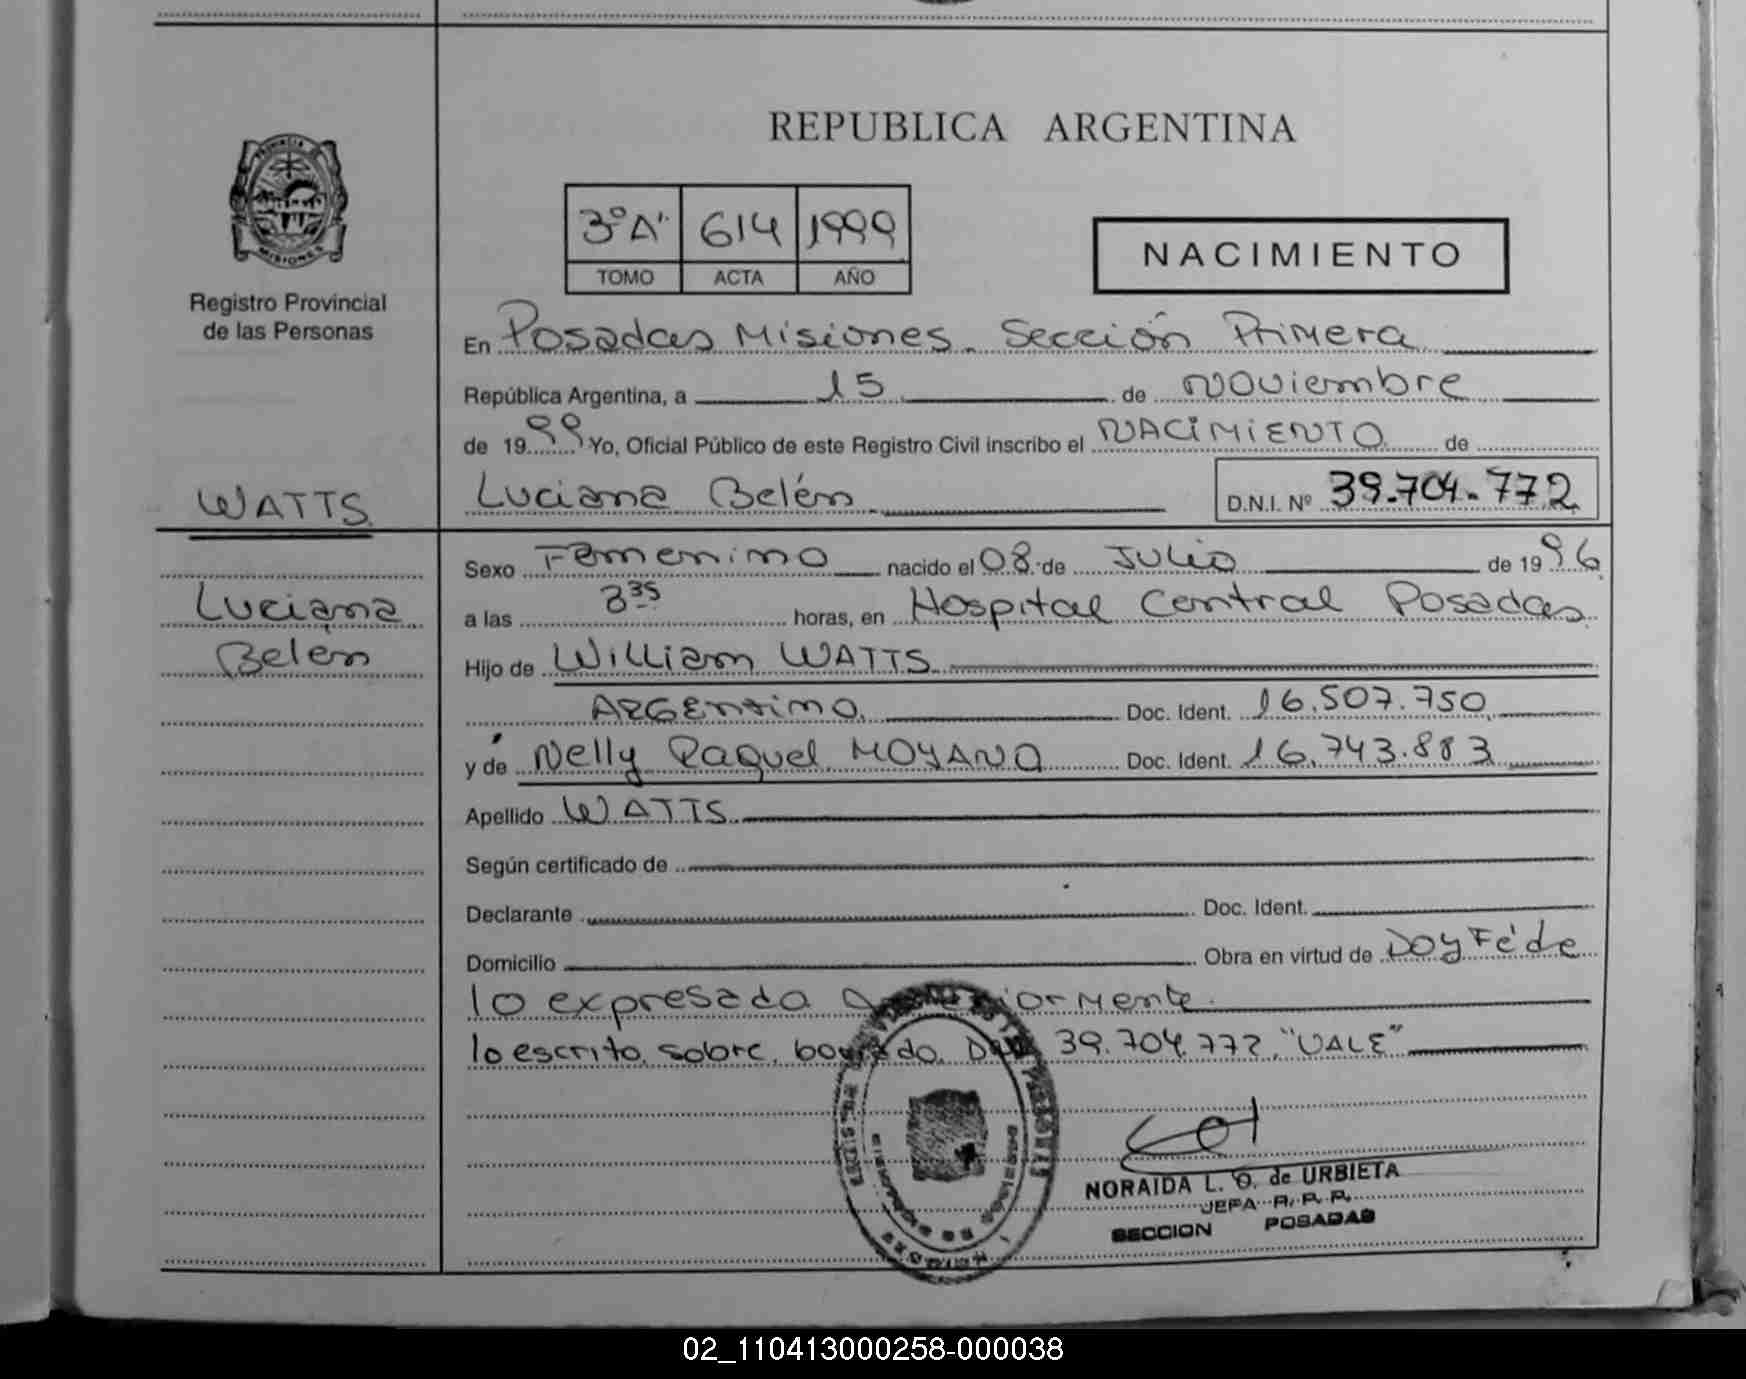 REPUBLICA ARGENTINA
PROVINCIA
MISIONES
Registro Provincial
de las Personas
3º"A" 614 1999
TOMO ACTA AÑO
NACIMIENTO
En Posadas Misiones. Sección Primera
República Argentina, a 15 de Noviembre
de 1999 Yo, Oficial Público de este Registro Civil inscribo el NACIMIENTO de
WATTS Luciana Belén D.N.I. Nº 39.704.772
Sexo Femenino nacido el 08 de Julio de 1996
Luciana a las horas, en Hospital Central Posadas
Belén Hijo de William WATTS
ARGENTINO. Doc. Ident. 16.507.750
y de Nelly Raquel MOYANO Doc. Ident. 16.743.883
Apellido WATTS
Según certificado de
Declarante Doc. Ident.
Domicilio Obra en virtud de Doy Fé de
lo expresado anteriormente.
lo escrito sobre borrado. DNI 39.704.772. "VALE"
NORAIDA L. O. de URBIETA
JEFA R. P. P.
SECCION POSADAS
02_110413000258-000038